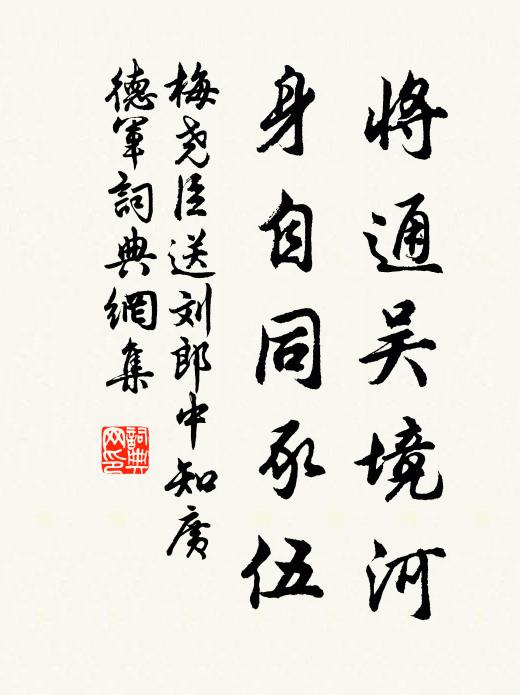 将通吴境河
身自同永伍
梅尧臣送刘郎中知广
德军詞典網集
詞典
网印